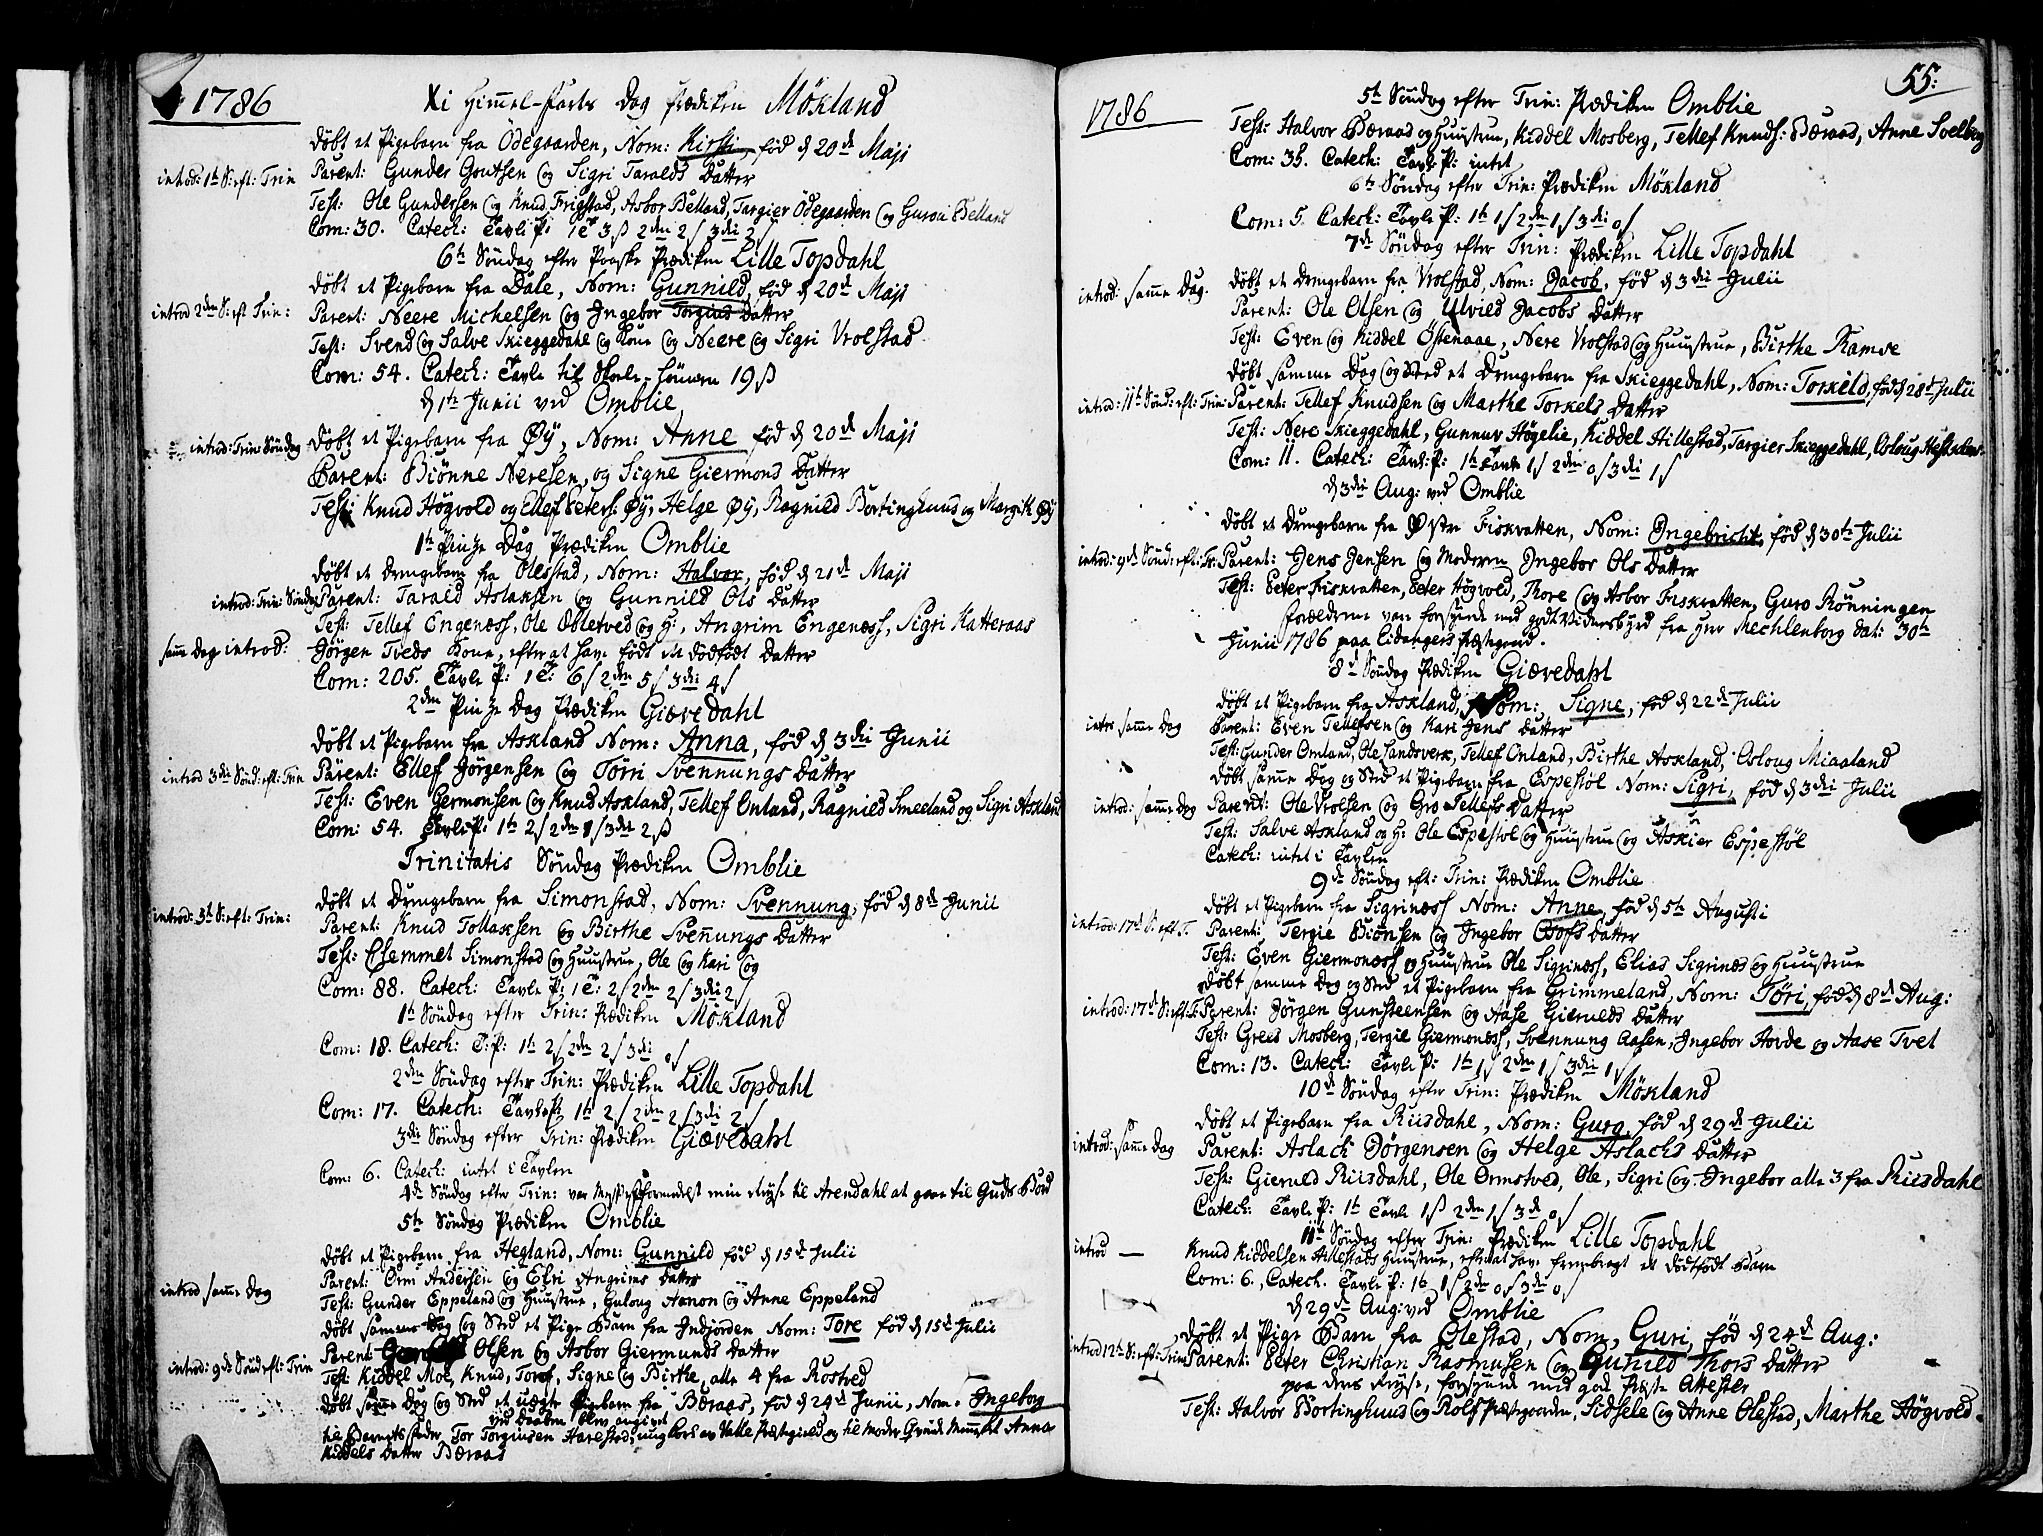 1786
Xi Himmel-Farts Dag Prædiken Möxland
döbt et Pigebarn fra Ödegaarden, Nom: Kirsti, föd d 20de Maji
introd: 1te S: eft: Trin
Parent: Gunder Goutsen og Sigri Taralds Datter
Test: Ole Gundersen og Knud Frigstad, Asbor Belland, Targier Ödegaarden og Guroi Belland
Com: 30. Catech: Tavle P: 1te 3ß 2den 2ß 3die 2ß
6te Söndag efter Paaske Prædiken Lille Topdahl
döbt et Pigebarn fra Dale, Nom: Gunnild, föd d 20de Maji
introd 2den S: eft Trin:
Parent: Neere Michelsen og Ingebor Torgius Datter
Test: Svend og Salve Skieggedahl og Kone og Neere og Sigri Vrolstad
Com: 54. Catech: Tavle til Skole-Holderen 19ß
d 1te Junii ved Omblie
introd: Trin: Söndag
döbt et Pigebarn fra Øÿ, Nom: Anne föd d 20de Maji
Parent: Biönne Neresen, og Signe Giermonds Datter
Test: Knud Högvold og Ellef Peters: Øÿ, Helge Øÿ, Ragnild Bortinghuus og Margit Øÿ
1te Pinze Dag, Prædiken Omblie
döbt et Drengebarn fra Olestad, Nom: Halvor, föd d 21de Maji
introd: Trin: Söndag
Parent: Tarald Aslaksen og Gunnild Ols Datter
Test: Tellef Engenæss, Ole Ubletved og H:, Angrim Engenæss, Sigri Katteraas
samme Dag introd:
Jörgen Tveds Kone, efter at have födt et dödfödt Datter
Com: 205. Tavle P: 1te 6ß 2den 5ß 3die 4ß
2den Pinze Dag Prædiken Giævedahl
döbt et Pigebarn fra Askland Nom: Anna, föd d 3die Junii
introd 3die Sönd: eft: Trin
Parent: Ellef Jörgensen og Törri Svennungs Datter
Test: Even Germonsen og Knud Askland, Tellef Omland, Ragnild Smeeland og Sigri Askland
Com: 54. Tavle P: 1te 2ß 2den 1ß 3die 2ß
Trinitatis Söndag Prædiken Omblie
döbt et Drengebarn fra Simonstad, Nom: Svennung, föd d 8de Junii
introd: 5te S: eft: Trin:
Parent: Knud Tollaksen og Birthe Svenungs Datter
Test: Chemmet Simonstad og Huustrue, Ole og Kari og
Com: 88. Catech: Tavle P: 1te 2ß 2den 2ß 3die 2ß
1te Söndag efter Trin: Prædiken Möxland
Com: 18. Catech: T: P: 1te 2ß 2den 2ß 3die 0ß
2den Söndag efter Trin: Prædiken Lille Topdahl
Com: 17. Catech: Tavle P: 1te 2ß 2den 2ß 3die 2ß
3die Söndag efter Trin: Prædiken Giævedahl
Com: 6. Catech: intet i Tavlen
4de Söndag efter Trin: var Messefald formedelst min Reyse til Arendahl at gaae til Guds Bord
5te Söndag Prædiken Omblie
döbt et Pigebarn fra Hegland, Nom: Gunnild föd d 15de Julii
Parent: Orm Andersen og Efri Angrims Datter
introd samme Dag
Test: Gunder Eppeland og Huustrue, Guloug Hænon og Anne Eppeland
döbt samme Dag og Sted et Pige Barn fra Indjorden Nom: Tore föd d 15de Julii
introd: 9de Sönd eft: Trin
Parent: Olsen og Asbor Giermunds Datter
Test: Kiddel Moe, Knud, Torof, Signe og Birthe, alle 4 fra Rostved
döbt samme Dag og Sted et uægte Pigebarn fra Beraas, föd d 24de Junii, Nom: Ingeborg
ved Daaben blev angivet
til Barnets Fader Tor Torgiusen Harestad, ung Karl av Valle Præstegield og til Moder Qvinde Mennesket Anna
Kiddels Datter Beraas
55:
1786
5te Söndag efter Trin: Prædiken Omblie
Test: Halvor Beraas og Huustrue, Kiddel Mosberg, Tellef Knuds: Beraas, Anne Svelberg
Com: 35. Catech: Tavle P: intet
6te Söndag efter Trin: Prædiken Möxland
Com: 5. Catech: Tavle P: 1te 1ß 2den 1ß 3die 0ß
7de Söndag efter Trin: Prædiken Lille Topdahl
introd: samme Dag.
döbt et Drengebarn fra Vrolstad, Nom: Jacob, föd d 3die Julii
Parent: Ole Olsen og Ulvild Jacobs Datter
Test: Even og Kiddel Östenaae, Nere Vrolstad og Huustrue, Birthe Ramse
döbt samme Dag og Sted et Drengebarn fra Skieggedahl, Nom: Torkild, föd d 28de Julii
introd: 11te Sönd: eft: Trin:
Parent: Tellef Knudsen og Marthe Torkels Datter
Test: Nere Skieggedahl, Gunnur Högelie, Kiddel Hillestad, Targier Skieggedahl, Osloug
Com: 11. Catech: Tavl: P: 1te Tavle 1ß 2den 0ß 3die 1ß
d 3die Aug: ved Omblie
döbt et Drengebarn fra Østre Fiskvatten, Nom: Ingebricht, föd d 30te Julii
introd: 9de Sönd: eft: Tr:
Parent: Jens Jensen og Moderen Ingebor Ols Datter
Test: Peter Fiskvatten, Peter Högvold, Thore og Asbor Fiskvatten, Guro Rönningen
Forældrene vare forsynede med godt Vidnesbyrd fra Herr Mechlenborg dat: 30te
Junii 1786 paa Eidangers Præstegaard.
8de Söndag Prædiken Giævedahl
döbt et Pigebarn fra Askland, Nom:, Signe, föd d 22de Julii
intro samme Dag
Parent: Even Tellefsen og Kari Jens Datter
Test: Gunder Omland, Ole Landsverk, Tellef Omland, Birthe Askland, Osloug Miaaland
döbt samme Dag og Sted et Pigebarn fra Espestöl Nom: Sigri, föd d 3die Julii
introd: samme Dag
Parent: Ole Vrolsen og Gro Tellefs Datter
Test: Salve Askland og H: Ole Espestöl og Huustrue og Askier Espestöl
Catech: intet i Tavlen
9de Söndag eft: Trin: Prædiken Omblie
döbt et Pigebarn fra Sigrinæss Nom: Anne, föd d 5te Augusti
introd: 17de S: eft T.
Parent: Tergie Biönsen og Ingebor Osofs Datter
Test: Even Giermonæss og Huustrue Ole Sigrinæss, Elias Sigrinæs og Huustrue
döbt samme Dag og Sted et Pigebarn fra Grimmeland, Nom: Töri, föd d 8de Aug:
introd: 17de S: eft: T:
Parent: Jörgen Gunsteensen og Aase Gierulds Datter
Test: Grees Mosberg, Tergie Giermonæss, Svennung Aasen, Ingebor Hovde og Aase Tvet
Com: 13. Catech: Tavle P: 1te 1ß 2den 1ß 3die 1ß
10de Söndag efter Trin: Prædiken Möxland
döbt et Pigebarn fra Riisdahl, Nom: Gurg, föd d 29de Julii
introd: samme Dag
Parent: Aslach Jörgensen og Helge Aslachs Datter
Test: Gieruld Riisdahl, Ole Ormstved, Ole, Sigri og Ingebor alle 3 fra Riisdahl
Catech: Tavle P: 1te Tavle 1ß 2den 1ß 3de 0ß
11te Söndag efter Trin: Prædiken Lille Topdahl
introd —
Knud Kiddelsen Hillestads Huustrue, efter at have frembragt et dödfödt Barn
Com: 6, Catech. Tavle P: 1te 1ß 2den 0ß 3die 0ß
d 29de Aug: ved Omblie
döbt et Pige Barn fra Olestad, Nom, Guri, föd d 24de Aug:
introd 12te S: eft: Trin
Parent: Peter Christian Rasmusen og Gunild Thors Datter
paa deres Reyse, forsynede med god Præste Attester
Test: Halvor Bortinghuus og Rolf Præstegaarden, Sidsele og Anne Olestad, Marthe Högvold.